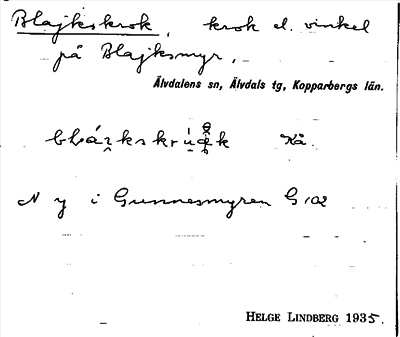 Blajkskrok, krok el. vinkel
på Blajksmyr.
Älvdalens sn, Älvdals tg, Kopparbergs län.
Kå.
N y i Gunnesmyren G 102
HELGE LINDBERG 1935.